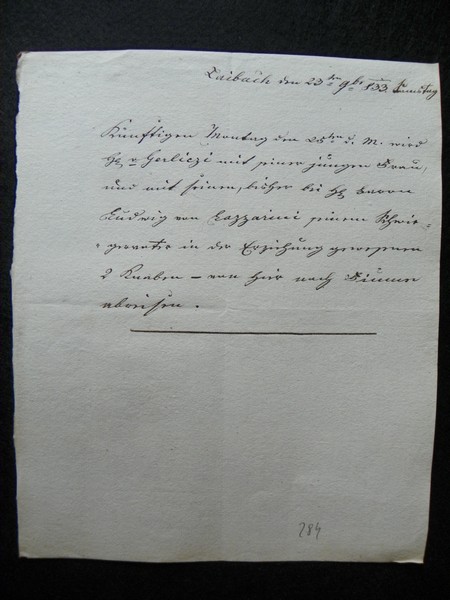 Laibach den 23ten 9br 833. Samstag
Künftigen Montag den 25ten d. M. wird
H. v Gerliczi mit seiner jungen Frau,
und mit seinen, bisher bei H. Baron
Ludwig von Lazzarini seinem Schwie-
gervater in der Erziehung gewesenen
2 Knaben – von hier nach Fiume
abreisen.
284